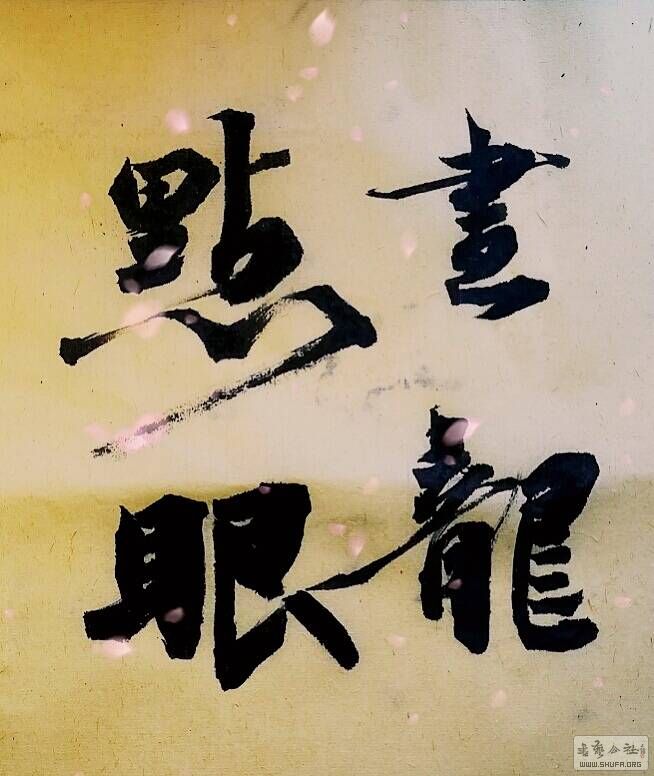 畫龍
點眼
書藝公社
WWW.SHUFA.ORG